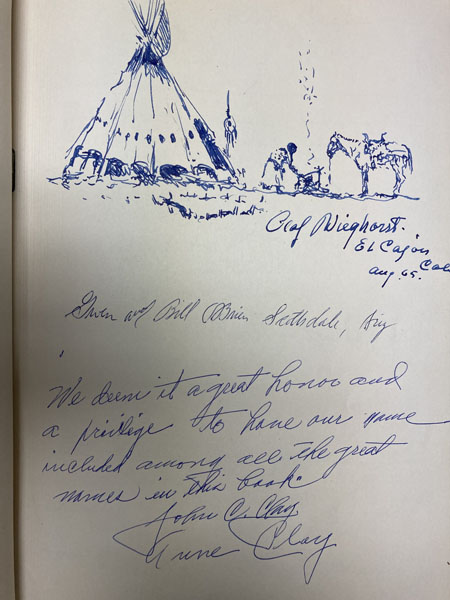 Olaf Wieghorst.
El Cajon
Aug. 65. Cal
Gwen and Bill O'Brien Scottsdale, Ariz
We deem it a great honor and
a privilige to have our name
included among all the great
names in this book.
John C. Clay
Anne Clay